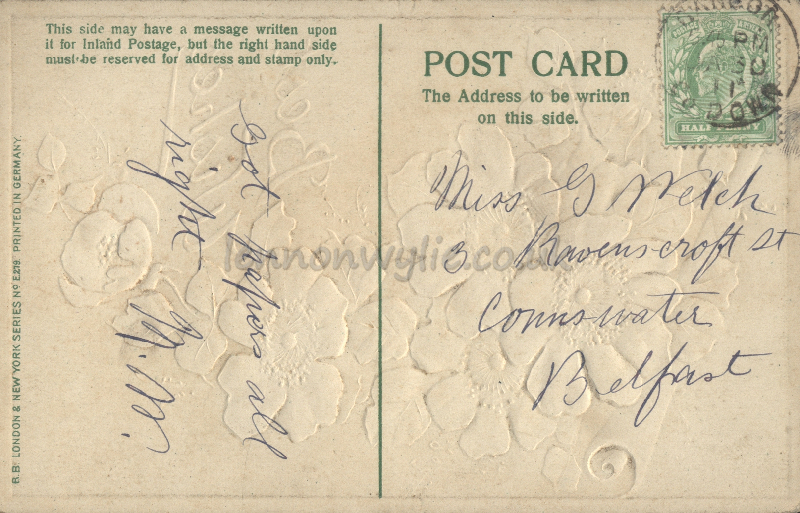 This side may have a message written upon
it for Inland Postage, but the right hand side
must be reserved for address and stamp only.
B.B. LONDON & NEW YORK SERIES No E219 PRINTED IN GERMANY.
Got papers all
right
POST CARD
The Address to be written
on this side.
HALFPENNY
DOWN
Miss G Welch
3 Ravenscroft St
Connswater
Belfast
lennonwylie.co.uk